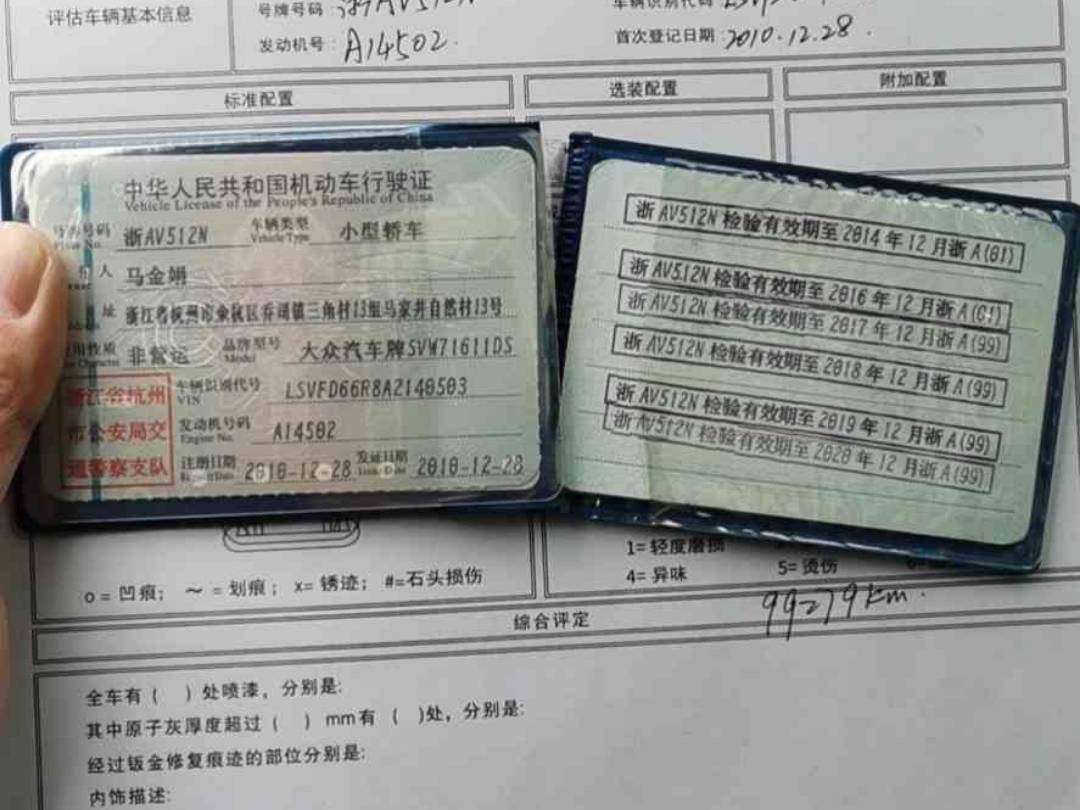 评估车辆基本信息
号牌号码：浙AV512N
车辆识别代码：
发动机号：A14502.
首次登记日期：2010.12.28.
标准配置
选装配置
附加配置
中华人民共和国机动车行驶证
Vehicle License of the People's Republic of China
号码 浙AV512N 车辆类型 小型轿车
Plate No. Vehicle Type
人 马金娟
址 浙江省杭州市余杭区乔司镇三角村13组马家井自然村13号
使用性质 非营运 品牌型号 大众汽车牌SVW71611DS
Model
浙江省杭州
市公安局交
通警察支队
车辆识别代号 LSVFD66R8A2140503
VIN
发动机号码 A14502
Engine No.
注册日期 2010-12-28 发证日期 2010-12-28
Issue Date
浙AV512N 检验有效期至 2014 年 12 月浙A(01)
浙AV512N 检验有效期至 2016 年 12 月浙A(01)
浙AV512N 检验有效期至 2017 年 12 月浙A(99)
浙AV512N 检验有效期至 2018 年 12 月浙A(99)
浙AV512N 检验有效期至 2019 年 12 月浙A(99)
浙AV512N 检验有效期至 2020 年 12 月浙A(99)
o = 凹痕； ～ = 划痕； x= 锈迹； #=石头损伤
1= 轻度磨损
4= 异味
5= 烫伤
99279km.
综合评定
全车有（ ）处喷漆，分别是:
其中原子灰厚度超过（ ）mm有（ ）处，分别是:
经过钣金修复痕迹的部位分别是:
内饰描述: